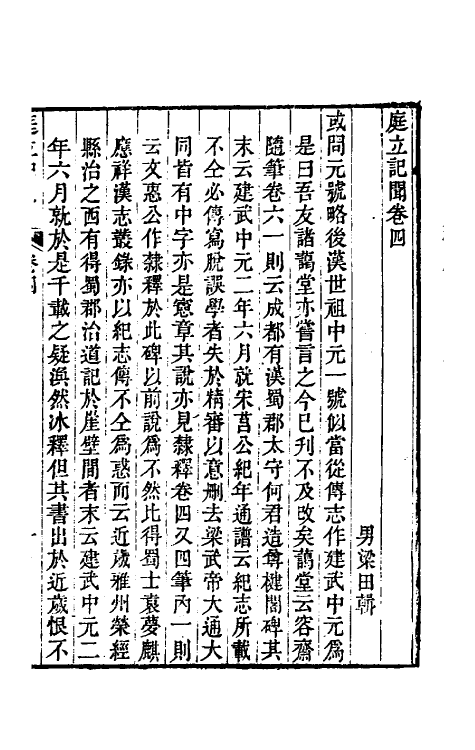 庭立記聞卷四
男梁田輯
或問元號略後漢世祖中元一號似當從傳志作建武中元爲
是曰吾友諸藹堂亦嘗言之今已刋不及改矣藹堂云容齋
隨筆卷六一則云成都有漢蜀郡太守何君造尊楗閣碑其
末云建武中元二年六月就宋莒公紀年通譜云紀志所載
不仝必傳寫脫誤學者失於精審以意刪去梁武帝大通大
同皆有中字亦是憲章其說亦見隸釋卷四又四筆內一則
云文惠公作隸釋於此碑以前說爲不然比得蜀士袁夢麒
應祥漢志叢錄亦以紀志傳不仝爲惑而云近歲雅州榮經
縣治之西有得蜀郡治道記於崖壁閒者末云建武中元二
年六月就於是千載之疑渙然冰釋但其書出於近歲恨不
卷四